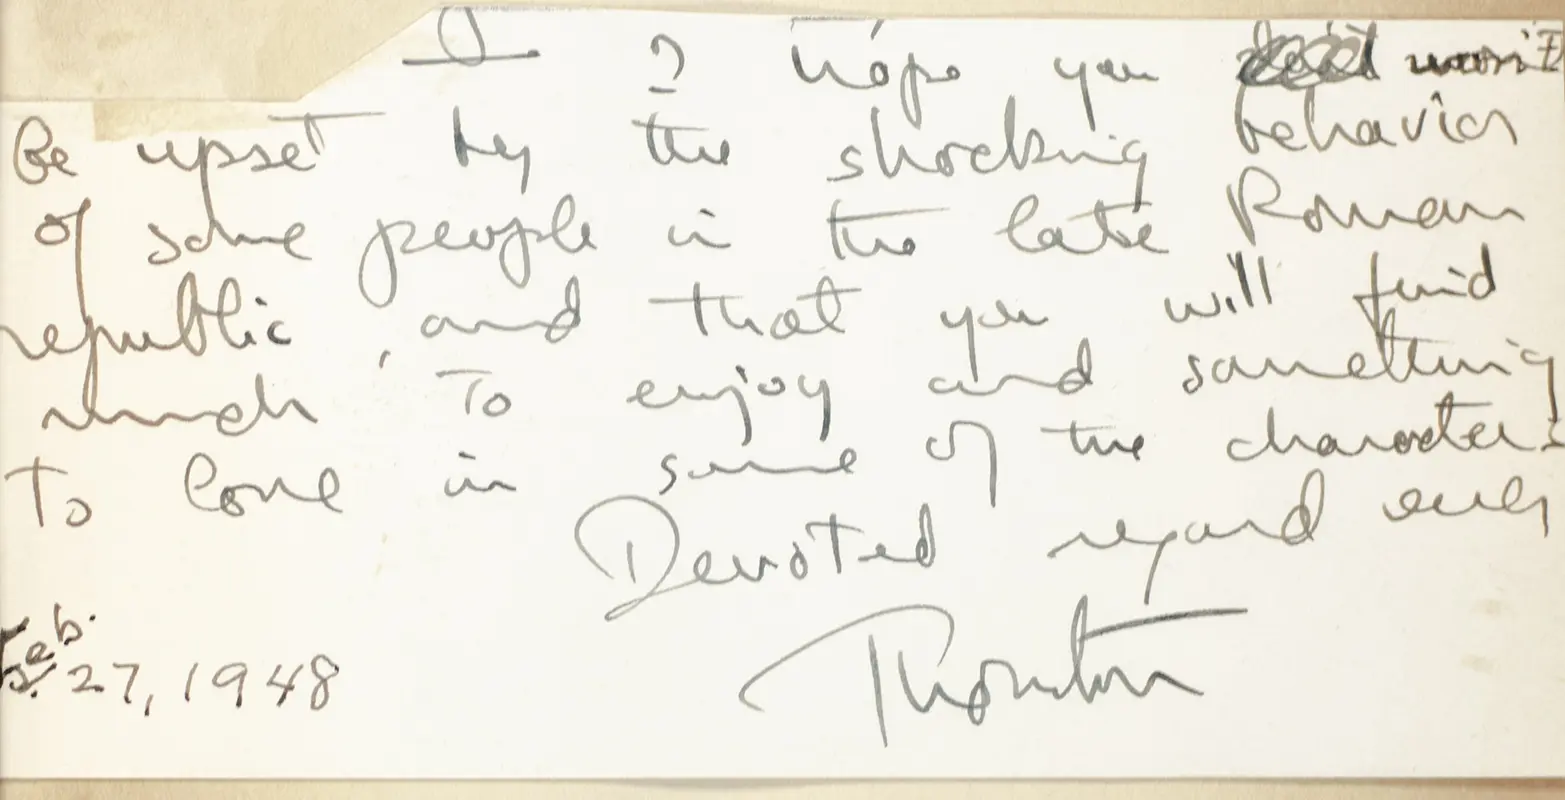 I ? hope you won't
be upset by the shocking behavior
of some people in the late Roman
republic, and that you will find
much to enjoy and something
to love in some of the characters
Devoted regard ever
Thornton
Feb.
27, 1948